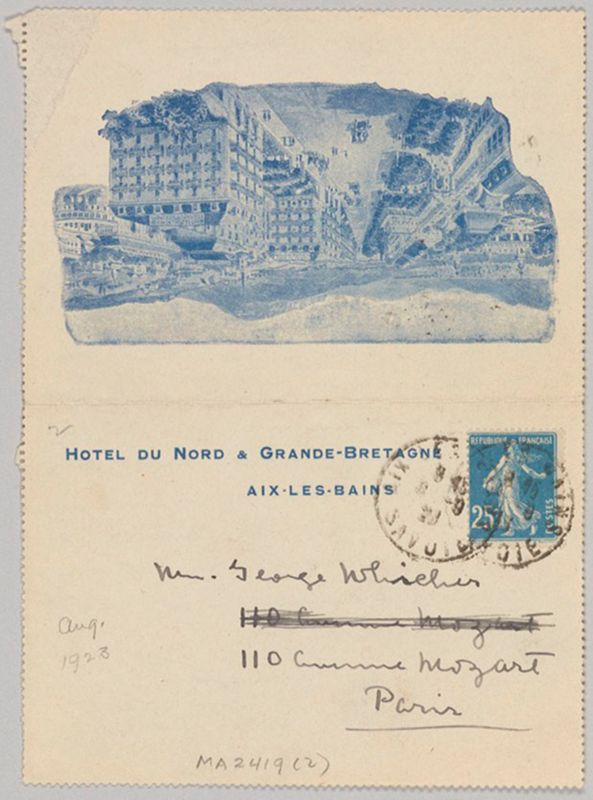 HOTEL DU NORD & GRANDE-BRETAGNE
AIX-LES-BAINS
REPUBLIQUE FRANÇAISE
25
POSTES
AIX-LES-BAINS
SAVOIE
Mr. George Whicher
110 Avenue Mozart
110 Avenue Mozart
Paris
Aug.
1923
MA 2419 (2)